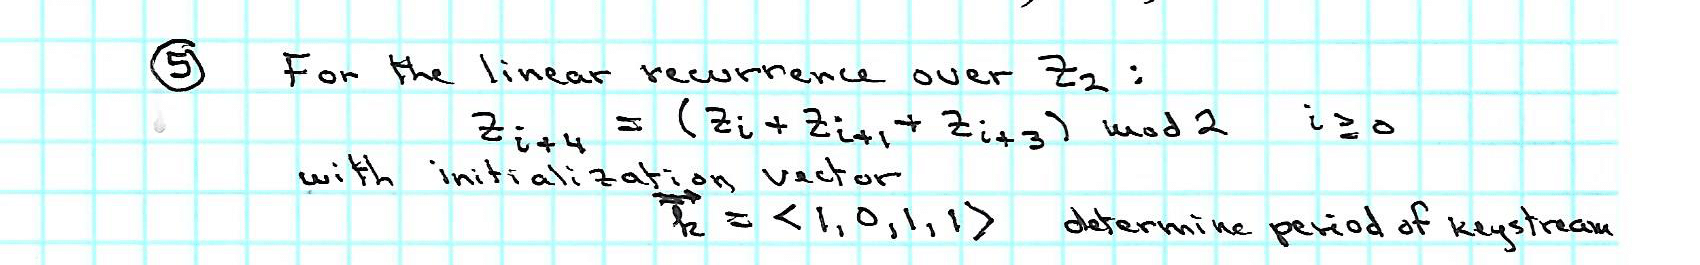 ⑤ For the linear recurrence over Z₂ :
Zᵢ₊₄ = (Zᵢ + Zᵢ₊₁ + Zᵢ₊₃) mod 2 i ≥ 0
with initialization vector
k⃗ = <1,0,1,1> determine period of keystream